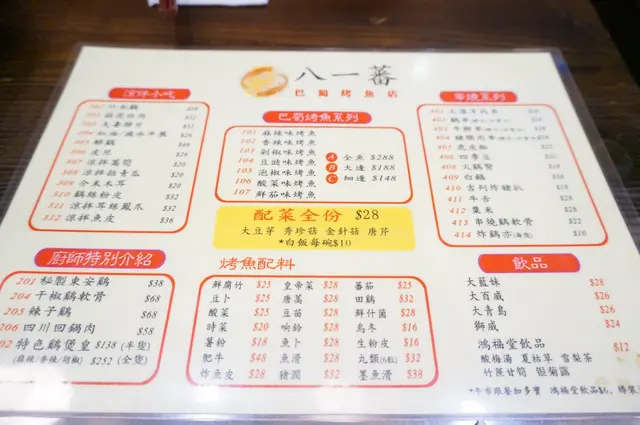 八一蕃
巴蜀烤魚店
涼拌小吃
301 口水雞
305 醉雞
306 皮旦 $20
307 涼拌萵筍 $20
308 涼拌拍青瓜 $20
309 合米木耳 $20
310 雞絲粉皮 $32
311 涼拌耳絲鳳爪 $32
312 涼拌魚皮 $36
巴蜀烤魚系列
101 麻辣味烤魚
102 香辣味烤魚
103 剁椒味烤魚
104 豆豉味烤魚
105 泡椒味烤魚
106 酸菜味烤魚
107 鮮茄味烤魚
A 全魚 $288
B 大邊 $188
C 細邊 $148
配菜全份 $28
大豆芽 秀珍菇 金針菇 唐芹
*白飯每碗$10
串燒系列
405 虎皮椒
406 四季豆
408 火腿腎
409 白鱔
410 吉列炸豬扒
411 牛舌 $28
412 粟米 $28
413 串燒雞軟骨 $22
414 炸雞亦(海苔) $22
廚師特別介紹
201 秘製東安雞 $38
204 干椒雞軟骨 $68
205 辣子雞 $68
206 四川回鍋肉 $58
02 特色雞煲皇 $138 (半隻)
(麻辣/香辣/胡椒) $252 (全隻)
烤魚配料
鮮腐竹 $25 皇帝菜 $28 蕃茄 $25
豆卜 $25 唐萵 $28 田雞 $32
酸菜 $25 豆苗 $28 鮮什菌 $28
時菜 $20 响鈴 $28 烏冬 $16
薯粉 $18 魚卜 $28 生粉皮 $16
肥牛 $48 魚滑 $28 丸類(6粒) $32
炸魚皮 $28 豬潤 $32 墨魚滑 $38
飲品
大藍妹 $28
大百威 $26
大青島 $26
獅威 $24
鴻福堂飲品 $12
酸梅湯 夏枯草 雪梨茶
竹蔗甘筍 銀菊露